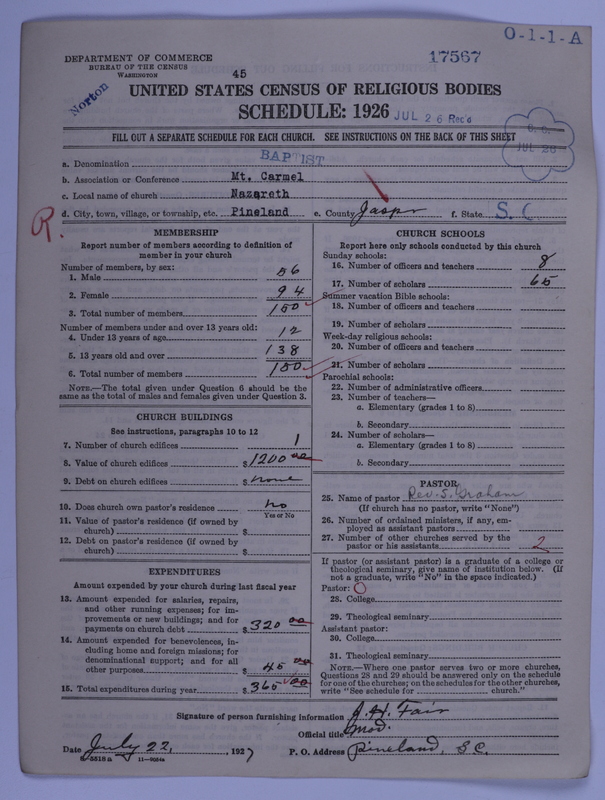 O-1-1-A
DEPARTMENT OF COMMERCE
BUREAU OF THE CENSUS
WASHINGTON
17567
45
Norton
UNITED STATES CENSUS OF RELIGIOUS BODIES
SCHEDULE: 1926
JUL 26 Rec'd
JUL 26
FILL OUT A SEPARATE SCHEDULE FOR EACH CHURCH. SEE INSTRUCTIONS ON THE BACK OF THIS SHEET
a. Denomination BAPTIST
b. Association or Conference Mt. Carmel
c. Local name of church Nazareth
d. City, town, village, or township, etc. Pineland e. County Jasper f. State S. C.
R.
MEMBERSHIP
Report number of members according to definition of
member in your church
Number of members, by sex:
1. Male 56
2. Female 94
3. Total number of members 150
Number of members under and over 13 years old:
4. Under 13 years of age 12
5. 13 years old and over 138
6. Total number of members 150
NOTE.—The total given under Question 6 should be the
same as the total of males and females given under Question 3.
CHURCH BUILDINGS
See instructions, paragraphs 10 to 12
7. Number of church edifices 1
8. Value of church edifices $1200 00
9. Debt on church edifices $ none
10. Does church own pastor's residence no
Yes or No
11. Value of pastor's residence (if owned by
church) $
12. Debt on pastor's residence (if owned by
church) $
EXPENDITURES
Amount expended by your church during last fiscal year
13. Amount expended for salaries, repairs,
and other running expenses; for im-
provements or new buildings; and for
payments on church debt $320 00
14. Amount expended for benevolences, in-
cluding home and foreign missions; for
denominational support; and for all
other purposes $ 45 00
15. Total expenditures during year $ 365 00
CHURCH SCHOOLS
Report here only schools conducted by this church
Sunday schools:
16. Number of officers and teachers 8
17. Number of scholars 65
Summer vacation Bible schools:
18. Number of officers and teachers
19. Number of scholars
Week-day religious schools:
20. Number of officers and teachers
21. Number of scholars
Parochial schools:
22. Number of administrative officers
23. Number of teachers—
a. Elementary (grades 1 to 8)
b. Secondary
24. Number of scholars—
a. Elementary (grades 1 to 8)
b. Secondary
PASTOR
25. Name of pastor Rev. S. Graham
(If church has no pastor, write "None")
26. Number of ordained ministers, if any, em-
ployed as assistant pastors
27. Number of other churches served by the
pastor or his assistants 2
If pastor (or assistant pastor) is a graduate of a college or
theological seminary, give name of institution below. (If
not a graduate, write "No" in the space indicated.)
Pastor: O
28. College
29. Theological seminary
Assistant pastor:
30. College
31. Theological seminary
NOTE.—Where one pastor serves two or more churches,
Questions 28 and 29 should be answered only on the schedule
for one of the churches; on the schedules for the other churches,
write "See schedule for church."
Signature of person furnishing information J. H. Fair
Official title Mod.
Date July 22, 1927 P. O. Address Pineland, S.C.
8-5518 a 11-9024a